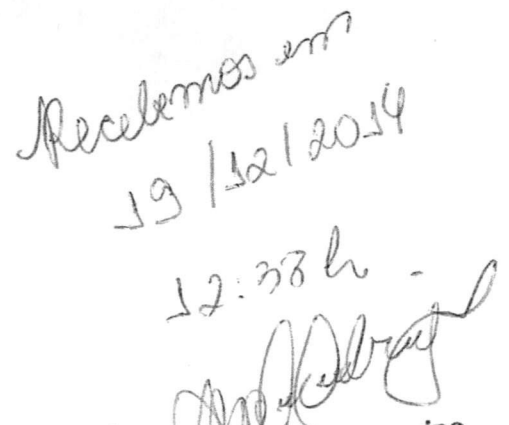 Recebemos em
19/12/2014
12:38h